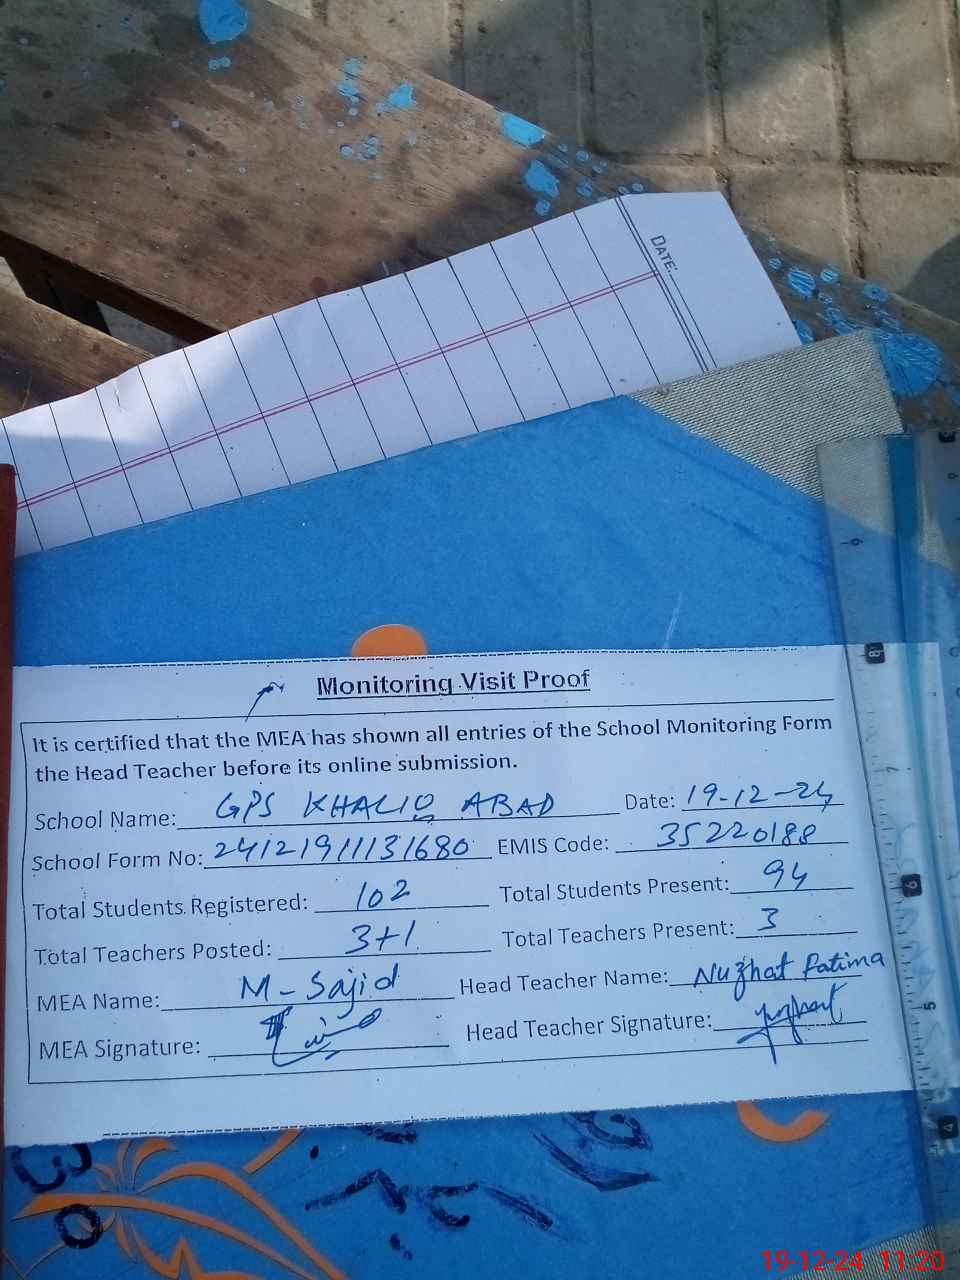 DATE:
Monitoring Visit Proof
It is certified that the MEA has shown all entries of the School Monitoring Form
the Head Teacher before its online submission.
School Name: GPS KHALIQ ABAD Date: 19-12-24
School Form No: 24121911131680 EMIS Code: 35220188
Total Students Registered: 102 Total Students Present: 94
Total Teachers Posted: 3+1 Total Teachers Present: 3
MEA Name: M-Sajid Head Teacher Name: Nuzhat Fatima
MEA Signature: Head Teacher Signature:
19-12-24 11:20